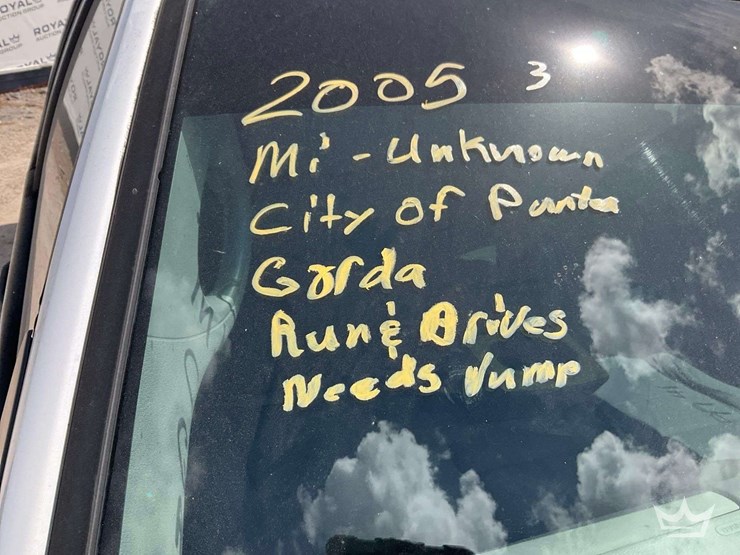 ROYAL
AUCTION GROUP
ROYAL
2005 3
Mi - Unknown
City of Punta
Gorda
Run & Drives
Needs Jump